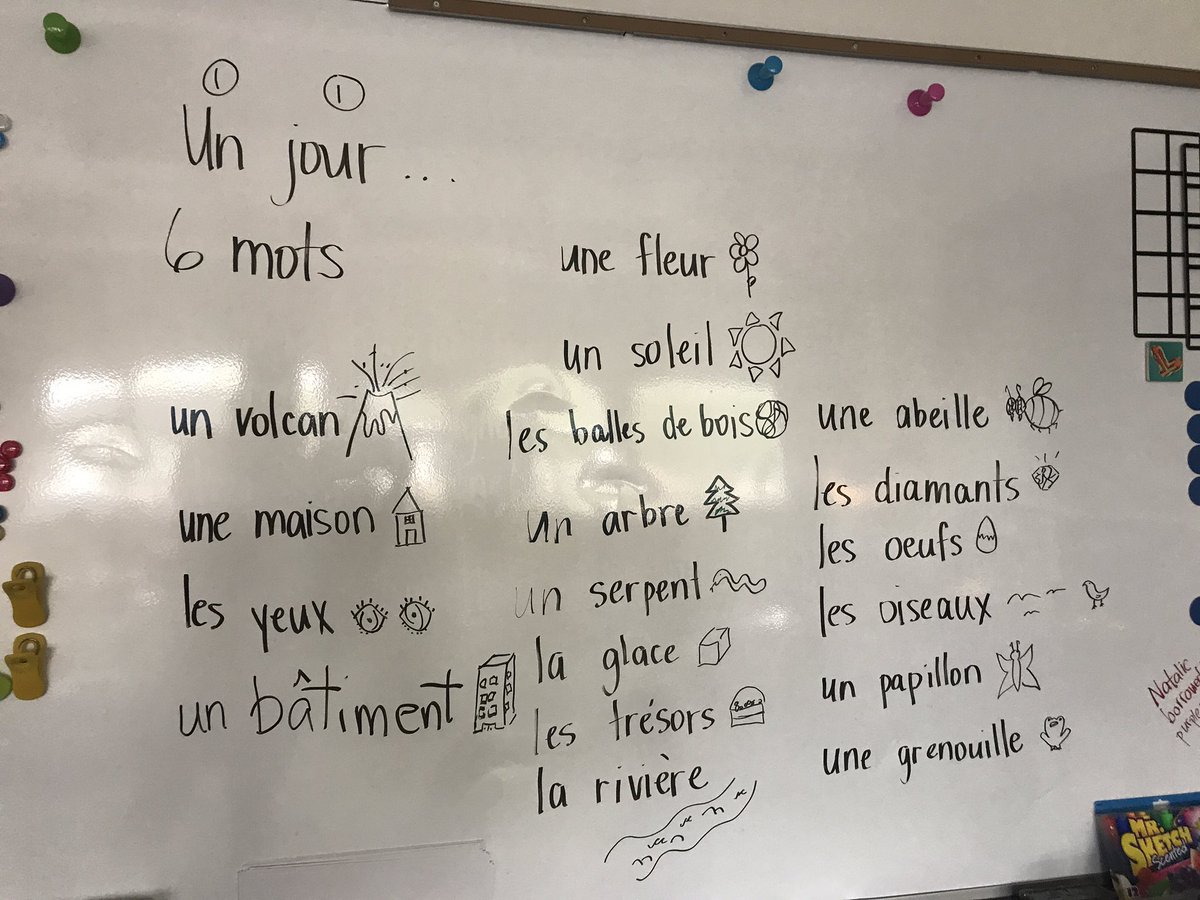 ① ①
Un jour...
6 mots
un volcan
une maison
les yeux
un bâtiment
une fleur
un soleil
les balles de bois
un arbre
un serpent
la glace
les trésors
la rivière
une abeille
les diamants
les oeufs
les oiseaux
un papillon
une grenouille
Natalie
borrowed
MR.
SKETCH
Scented